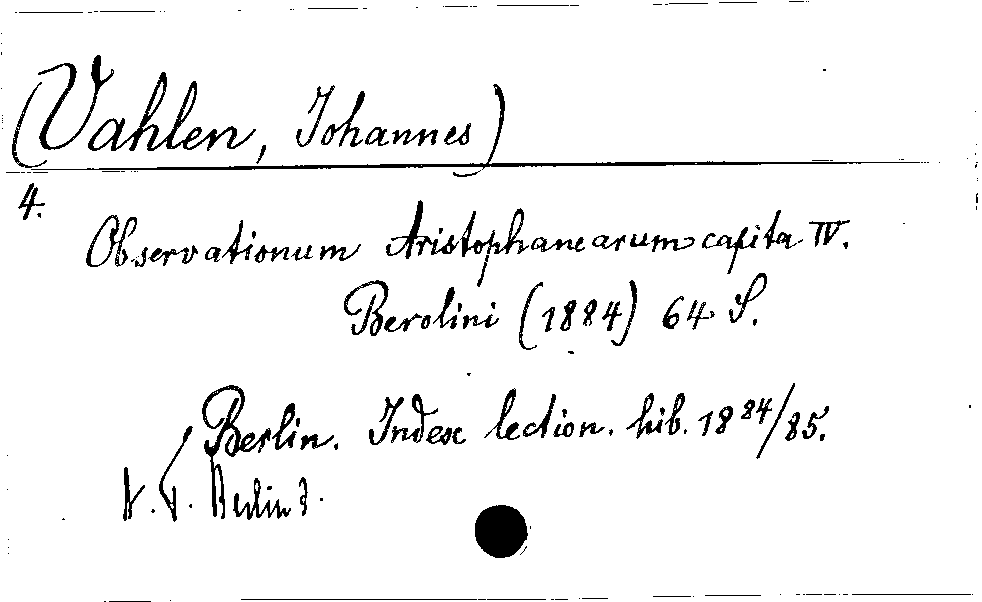 (Vahlen, Johannes)
4.
Observationum Aristophanearum capita IV.
Berolini (1884) 64 S.
Berlin. Index lection. hib. 1884/85.
Berlin 3.